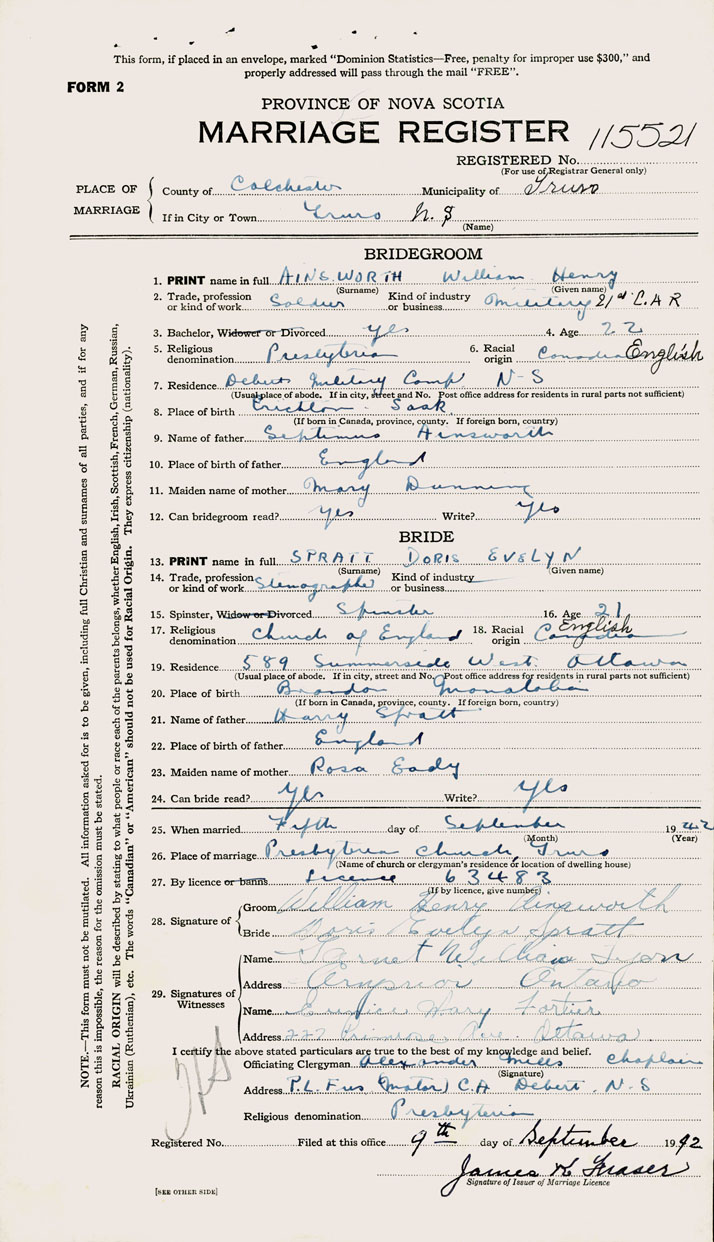 This form, if placed in an envelope, marked "Dominion Statistics—Free, penalty for improper use $300," and
properly addressed will pass through the mail "FREE".
FORM 2
PROVINCE OF NOVA SCOTIA
MARRIAGE REGISTER 115521
REGISTERED No.
(For use of Registrar General only)
PLACE OF MARRIAGE
County of Colchester Municipality of Truro
If in City or Town Truro N.S
(Name)
BRIDEGROOM
1. PRINT name in full AINSWORTH William Henry
(Surname) (Given name)
2. Trade, profession or kind of work Soldier Kind of industry or business Military 21st C.A R
3. Bachelor, Widower or Divorced yes 4. Age 22
5. Religious denomination Presbyterian 6. Racial origin Canadian English
7. Residence Debert Military Camp N-S
(Usual place of abode. If in city, street and No. Post office address for residents in rural parts not sufficient)
8. Place of birth Sask
(If born in Canada, province, county. If foreign born, country)
9. Name of father Septimus Ainsworth
10. Place of birth of father England
11. Maiden name of mother Mary Dunning
12. Can bridegroom read? yes Write? yes
BRIDE
13. PRINT name in full SPRATT DORIS EVELYN
(Surname) (Given name)
14. Trade, profession or kind of work Stenographer Kind of industry or business
15. Spinster, Widow or Divorced Spinster 16. Age 21
17. Religious denomination Church of England 18. Racial origin Canadian English
19. Residence 589 Summerside West. Ottawa
(Usual place of abode. If in city, street and No. Post office address for residents in rural parts not sufficient)
20. Place of birth Brandon Manatoba
(If born in Canada, province, county. If foreign born, country)
21. Name of father Harry Spratt
22. Place of birth of father England
23. Maiden name of mother Rosa Eady
24. Can bride read? Yes Write? Yes
25. When married Fifth day of September 1942
(Month) (Year)
26. Place of marriage Presbyterian Church, Truro
(Name of church or clergyman's residence or location of dwelling house)
27. By licence or banns License 63483
(If by licence, give number)
28. Signature of
Groom William Henry Ainsworth
Bride Doris Evelyn Spratt
29. Signatures of Witnesses
Name William
Address Arnprior Ontario
Name Eunice Mary Fortier
Address 222 Primrose Ave Ottawa
I certify the above stated particulars are true to the best of my knowledge and belief.
Officiating Clergyman Alexander Mills Chaplain
(Signature)
Address P.L. Fus (Motor) C.A Debert. N-S
Religious denomination Presbyterian
Registered No. Filed at this office 9th day of September 1942
James K Fraser
Signature of Issuer of Marriage Licence
[SEE OTHER SIDE]
NOTE.—This form must not be mutilated. All information asked for is to be given, including full Christian and surnames of all parties, and if for any
reason this is impossible, the reason for the omission must be stated.
RACIAL ORIGIN will be described by stating to what people or race each of the parents belongs, whether English, Irish, Scottish, French, German, Russian,
Ukrainian (Ruthenian), etc. The words "Canadian" or "American" should not be used for Racial Origin. They express citizenship (nationality).